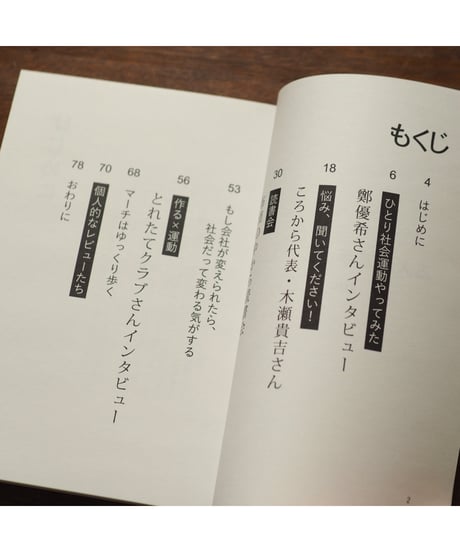 もくじ
4 はじめに
6 ひとり社会運動やってみた
鄭優希さんインタビュー
18 悩み、聞いてください！
ころから代表・木瀬貴吉さん
30 読書会
53 もし会社が変えられたら、
社会だって変わる気がする
56 作る×運動
とれたてクラブさんインタビュー
68 マーチはゆっくり歩く
70 個人的なレビューたち
78 おわりに
2